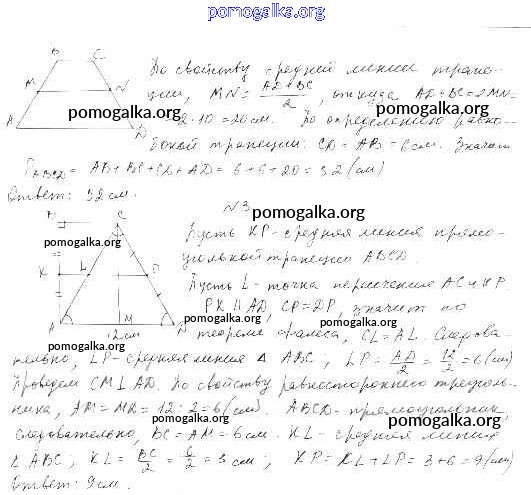 pomogalka.org
B C
По свойству средней линии трапе-
M N
ции, MN = AD+BC / 2, откуда AD+BC = 2MN =
pomogalka.org pomogalka.org
A D
= 2·10 = 20 см. По определению равно-
pomogalka.org
бокой трапеции: CD = AB = 6 см. Значит
P ABCD = AB + BC + CD + AD = 6 + 6 + 20 = 32 (см)
Ответ: 32 см.
N3
B C
pomogalka.org
Пусть KP - средняя линия прямо-
pomogalka.org
угольной трапеции ABCD.
K L
Пусть L - точка пересечения AC и KP.
PK || AD, CP = 2P, значит по
pomogalka.org
A M D
12 см
теореме Фалеса, CL = AL. Следова-
pomogalka.org
тельно, LP - средняя линия Δ ABC; LP = AD/2 = 12/2 = 6 (см)
Проведем CM⊥AD. По свойству равностороннего треуголь-
pomogalka.org
ника, AM = MD = 12 : 2 = 6 (см) ABCD - прямоугольник,
следовательно, BC = AM = 6 см. KL - средняя линия
pomogalka.org
Δ ABC; KL = BC/2 = 6/2 = 3 см; KP = KL + LP = 3 + 6 = 9 (см)
pomogalka.org
Ответ: 9 см.